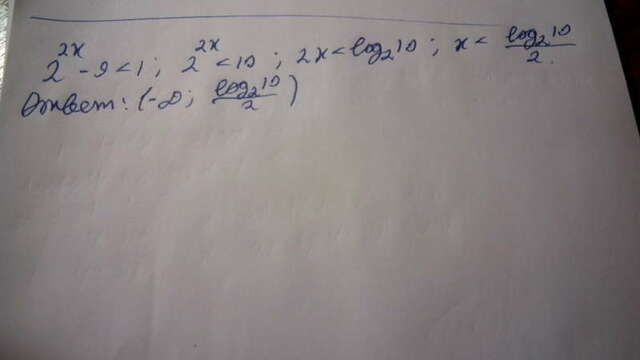 2^{2x} - 9 < 1 ; 2^{2x} < 10 ; 2x < log₂10 ; x < \frac{log₂10}{2}.
Ответ: (-∞; \frac{log₂10}{2})